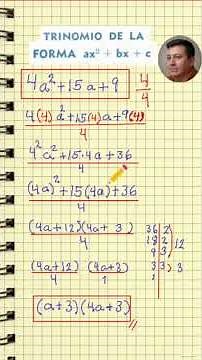 TRINOMIO DE LA
FORMA ax² + bx + c
4a²+15a+9 4/4
4(4)a²+15(4)a+9(4)
4
4²a²+15·4a+36
4
(4a)²+15(4a)+36
4
(4a+12)(4a+3)
4
36 2
18 2
9 3
3 3
1
12
3
(4a+12) (4a+3)
4 1
(a+3)(4a+3)